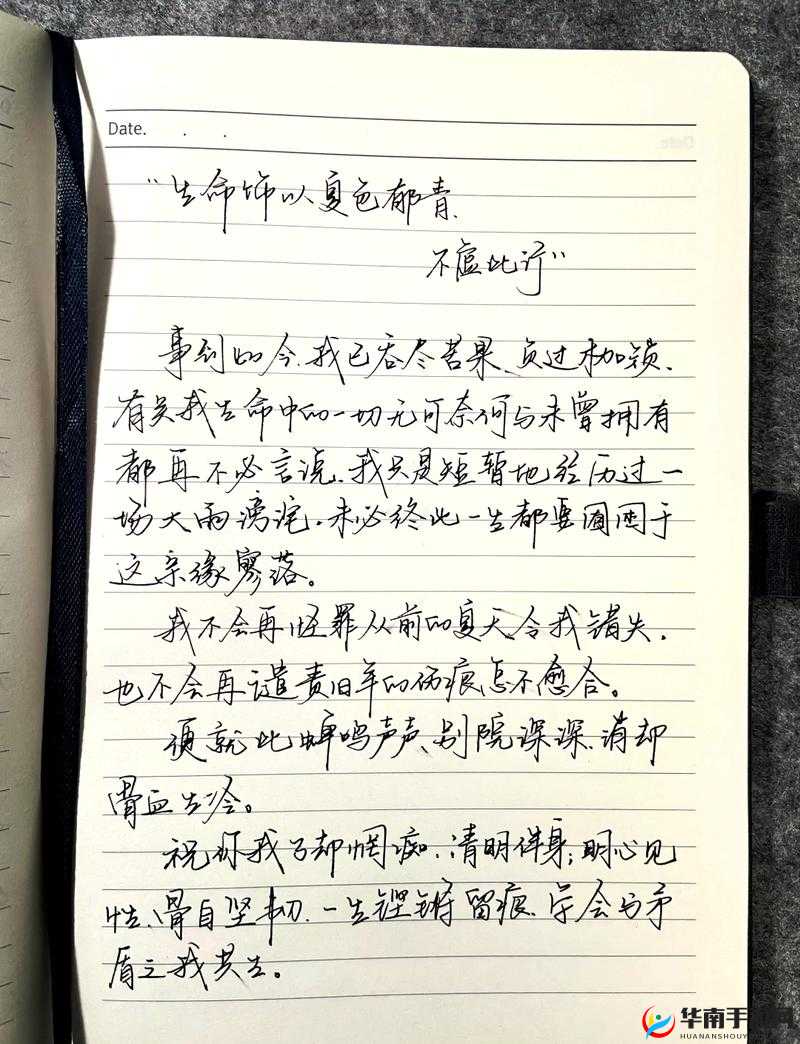 Date. . .
“生命饰以夏色郁青、
不虚此行”
事到如今、我已吞尽苦果、负过枷锁、
有关我生命中的一切无可奈何与未曾拥有
都再不必言说、我只是短暂地经历过一
场大雨滂沱、未必终此一生都要囿困于
这亲缘寥落。
我不会再怪罪从前的夏天令我错失、
也不会再谴责旧年的伤痕怎不愈合。
便就此蝉鸣声声、别院深深、消却
骨血生冷。
祝你我了却惘痴、清明伴身；明心见
性、骨自坚韧、一生铿锵留痕、学会与矛
盾之我共生。
华南手
HUANANSHOUY